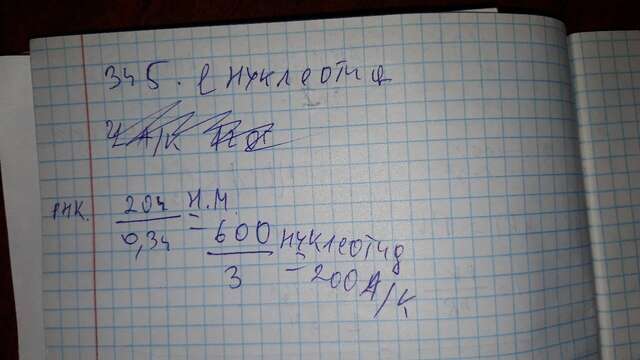 345. l нуклеотид
РНК. 204 Н.М.
0,34 = 600 нуклеотид
3 = 200 А/К